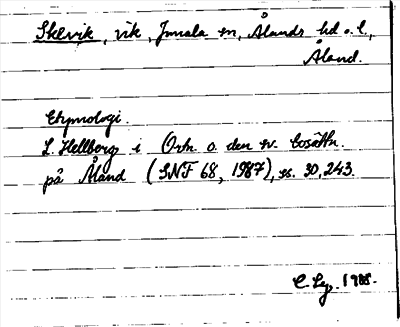 Skevik, vik, Jomala sn, Ålands hd o. l.,
Åland.
Etymologi.
L. Hellberg i Ortn. o. den sv. bosättn.
på Åland (SNF 68, 1987), ss. 30, 243.
1988.